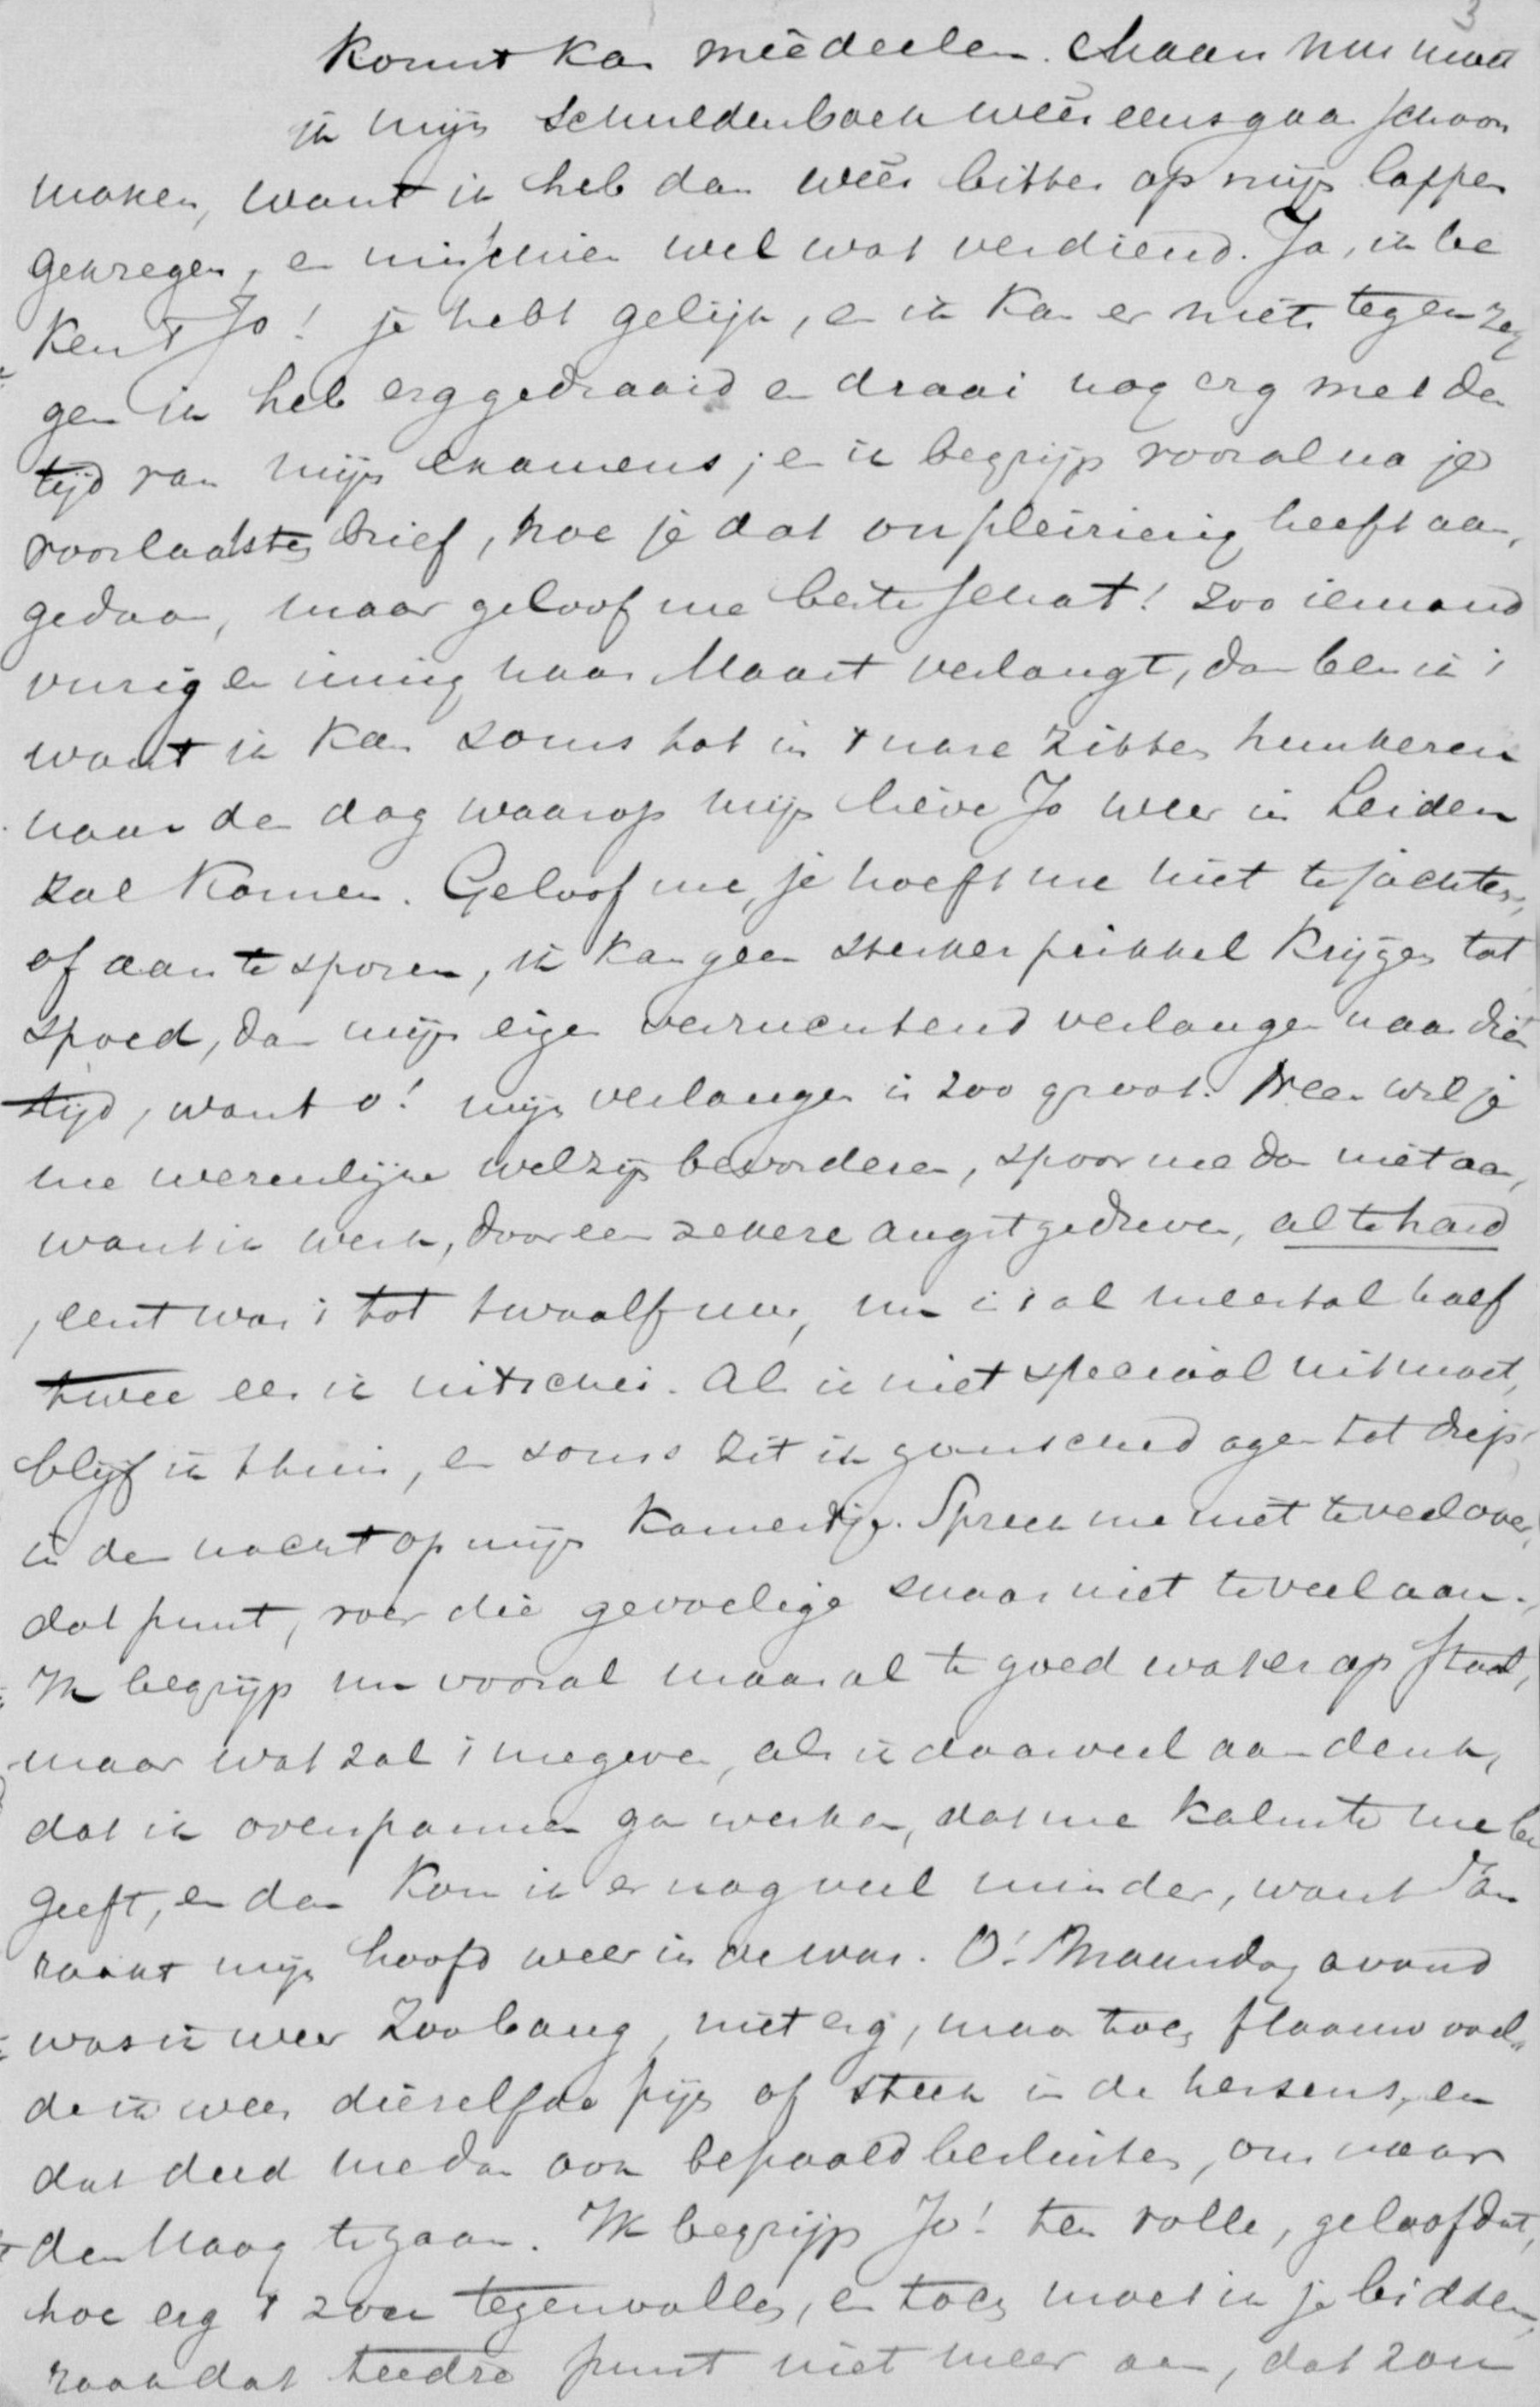 3
komt kan meêdeelen. Maar nu moet
ik mijn schuldenboek weêr eens gaan schoon
maken, want ik heb dan weêr bitter op mijn lappen
gekregen, en misschien wel wat verdiend. Ja, ik be
ken 't Jo! je hebt gelijk, en ik kan er niets tegen zeg
gen ik heb erg gedraaid en draai nog erg met den
tijd van mijn examens; en ik begrijp vooral na je
voorlaatsten brief, hoe je dat onpleizierig heeft aan
gedaan, maar geloof me beste schat! zoo iemand
vurig en innig naar Maart verlangt, dan ben ik 't
want ik kan soms tot in 't nare zitten hunkeren
naar den dag waarop mijn lieve Jo weer in Leiden
zal komen. Geloof me, je hoeft me niet te jachten,
of aan te sporen, ik kan geen sterker prikkel krijgen tot
spoed, dan mijn eigen verruchtend verlangen naar dien
tijd, want o! mijn verlangen is zoo groot. Neen wil je
me werenlijke welzijn bevorderen, spoor me dan niet aan,
want ik werk, door een zekere angst gedreven, al te hard
, eerst was 't tot twaalf uur, nu is 't al meestal half
twee eer ik uitschei. Als ik niet speciaal uit moet,
blijf ik thuis, en soms zit ik gansche dagen tot diep
in den nacht op mijn kamertje. Spreek me niet te veel over
dat punt, roer die gevoelige snaar niet te veel aan.
Ik begrijp nu vooral maar al te goed wat er op staat,
maar wat zal 't me geven, als ik daar veel aan denk,
dat ik overspannen ga werken, dat me kalmte me be
geeft, en dan kan ik er nog veel minder, want dan
raakt mijn hoofd weer in de war. O! Maandag avond
was ik weer zoo bang, niet erg, maar toch flaauw voel
de ik weer diezelfde pijn of steek in de hersens, en
dat deed me dan ook bepaald besluiten, om naar
den Haag te gaan. Ik begrijp Jo! ten volle, geloof dat,
hoe erg 't zou tegenvallen, en toch moet ik je bidden,
raak dat teedre punt niet meer aan, dat zou